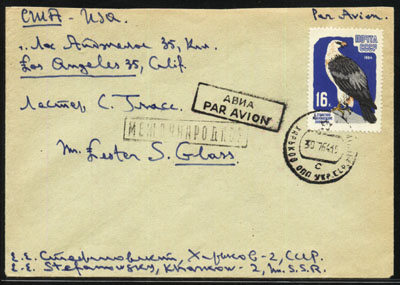 США - USA.
Par Avion.
г. Лос Анжелос 35, Кал.
Los Angeles 35, Calif.
ПОЧТА
СССР
16
К
Лестер С. Гласс.
АВИА
PAR AVION
МЕЖДУНАРОДНОЕ
Mr. Lester S. Glass.
ХАРЬКОВ УКР. ССР
С
Е.Е. Стефановский, Харьков-2, СССР
E.E. Stefanovsky, Kharkov-2, U.S.S.R.